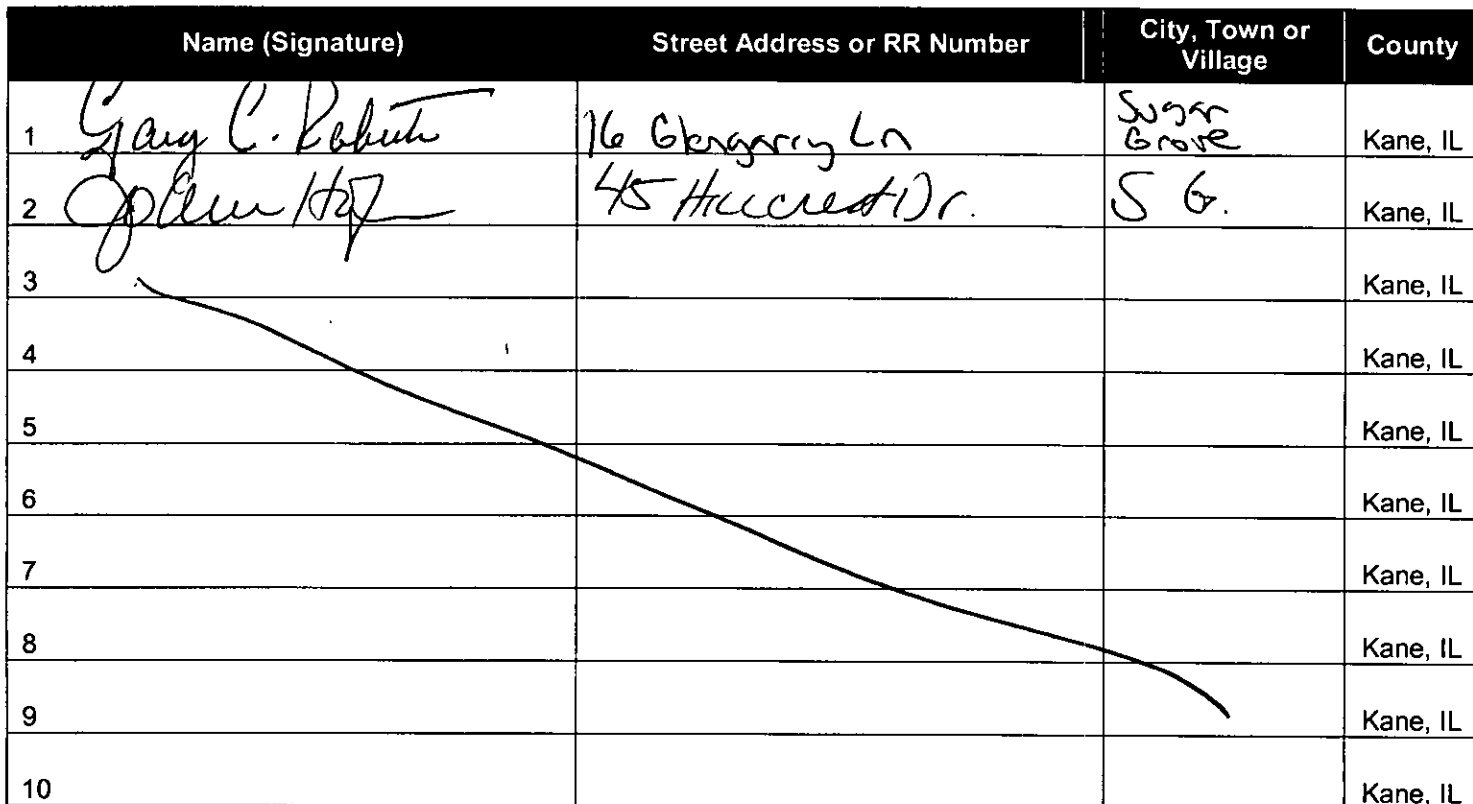 Name (Signature) Street Address or RR Number City, Town or Village County
1 Gary C. 16 Glengarry Ln Sugar Grove Kane, IL
2 45 Hillcrest Dr. S G. Kane, IL
3 Kane, IL
4 Kane, IL
5 Kane, IL
6 Kane, IL
7 Kane, IL
8 Kane, IL
9 Kane, IL
10 Kane, IL